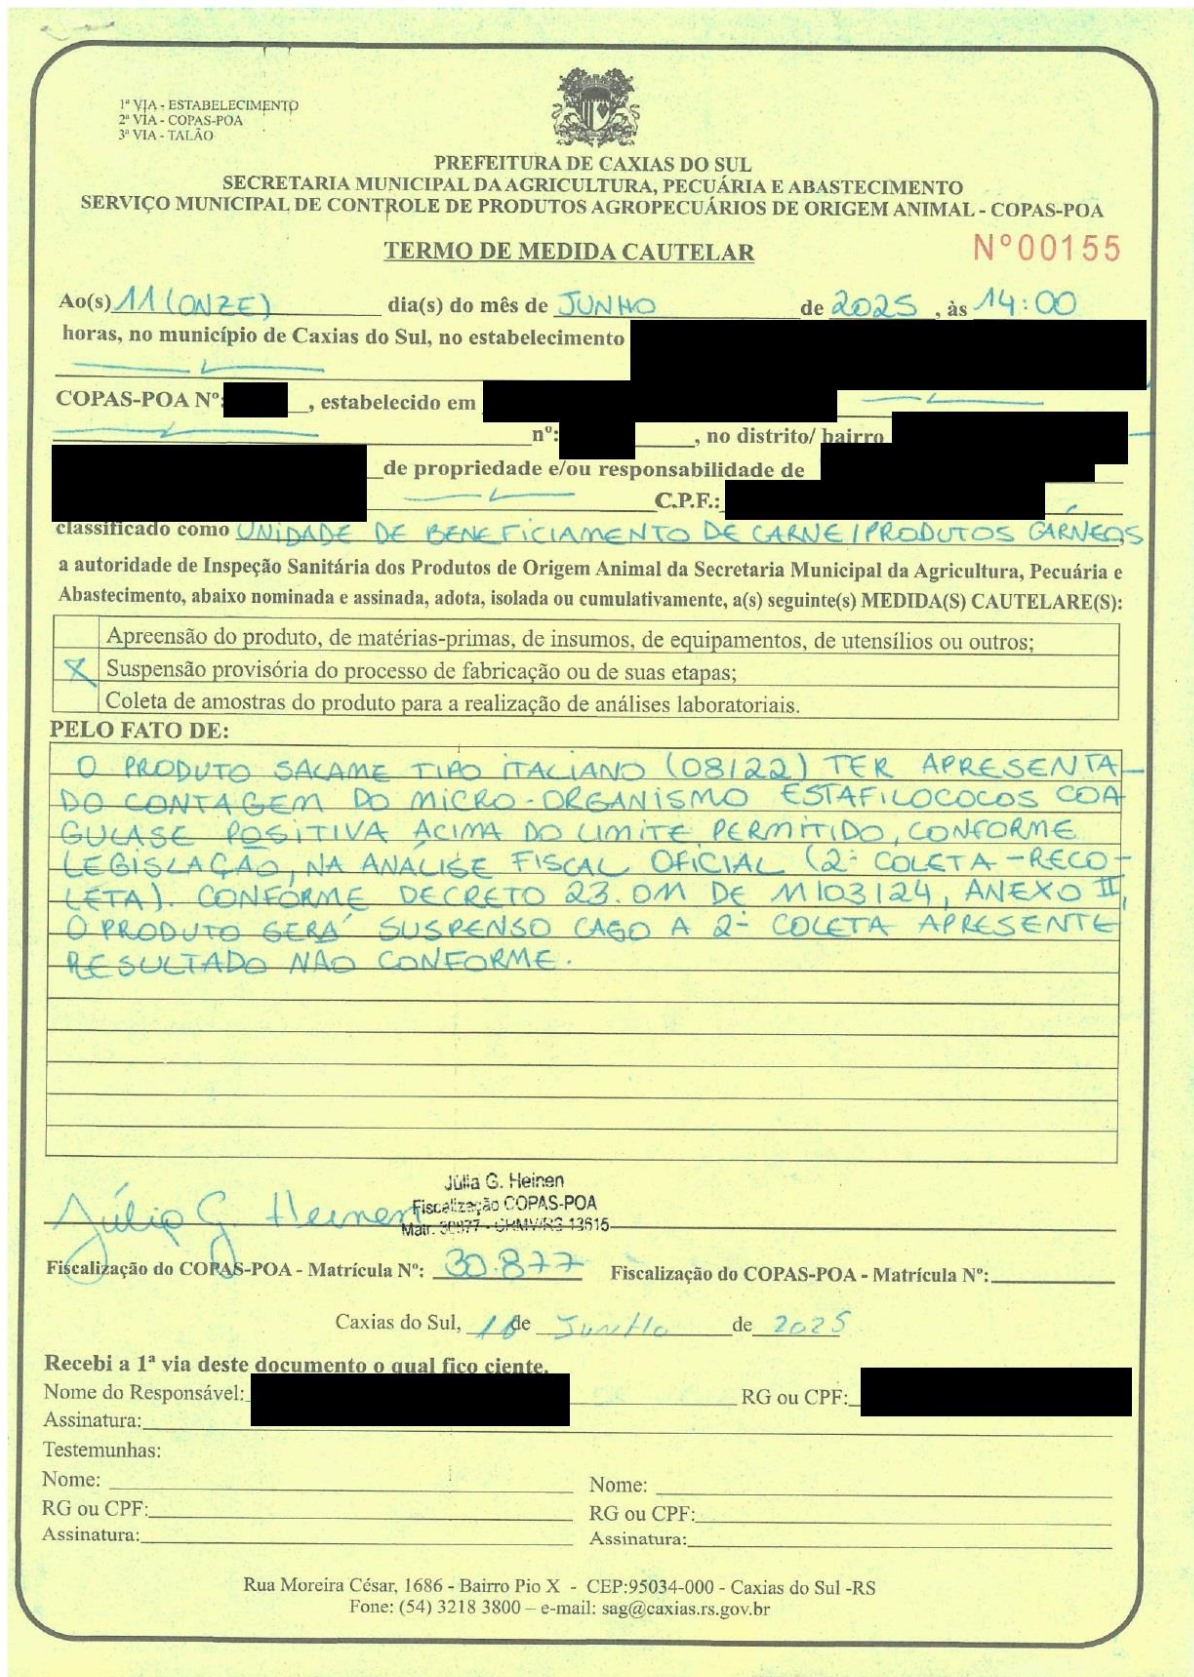 1ª VIA - ESTABELECIMENTO
2ª VIA - COPAS-POA
3ª VIA - TALÃO
PREFEITURA DE CAXIAS DO SUL
SECRETARIA MUNICIPAL DA AGRICULTURA, PECUÁRIA E ABASTECIMENTO
SERVIÇO MUNICIPAL DE CONTROLE DE PRODUTOS AGROPECUÁRIOS DE ORIGEM ANIMAL - COPAS-POA
TERMO DE MEDIDA CAUTELAR Nº00155
Ao(s) 11 (ONZE) dia(s) do mês de JUNHO de 2025, às 14:00
horas, no município de Caxias do Sul, no estabelecimento
COPAS-POA Nº: , estabelecido em
nº: , no distrito/ bairro
de propriedade e/ou responsabilidade de
C.P.F.:
classificado como UNIDADE DE BENEFICIAMENTO DE CARNE/PRODUTOS CÁRNEOS
a autoridade de Inspeção Sanitária dos Produtos de Origem Animal da Secretaria Municipal da Agricultura, Pecuária e
Abastecimento, abaixo nominada e assinada, adota, isolada ou cumulativamente, a(s) seguinte(s) MEDIDA(S) CAUTELARE(S):
Apreensão do produto, de matérias-primas, de insumos, de equipamentos, de utensílios ou outros;
X Suspensão provisória do processo de fabricação ou de suas etapas;
Coleta de amostras do produto para a realização de análises laboratoriais.
PELO FATO DE:
O PRODUTO SALAME TIPO ITALIANO (08/22) TER APRESENTA-
DO CONTAGEM DO MICRO-ORGANISMO ESTAFILOCOCOS COA
GULASE POSITIVA ACIMA DO LIMITE PERMITIDO, CONFORME
LEGISLAÇÃO, NA ANÁLISE FISCAL OFICIAL (2ª COLETA - RECO-
LETA). CONFORME DECRETO 23.011 DE 11/03/24, ANEXO II,
O PRODUTO SERÁ SUSPENSO CASO A 2ª COLETA APRESENTE
RESULTADO NÃO CONFORME.
Júlia G. Heinen
Júlia G. Heinen
Fiscalização COPAS-POA
Matr. 30877 - CRMV/RS 13615
Fiscalização do COPAS-POA - Matrícula Nº: 30.877 Fiscalização do COPAS-POA - Matrícula Nº:
Caxias do Sul, de Junho de 2025
Recebi a 1ª via deste documento o qual fico ciente.
Nome do Responsável: RG ou CPF:
Assinatura:
Testemunhas:
Nome: Nome:
RG ou CPF: RG ou CPF:
Assinatura: Assinatura:
Rua Moreira César, 1686 - Bairro Pio X - CEP:95034-000 - Caxias do Sul -RS
Fone: (54) 3218 3800 – e-mail: sag@caxias.rs.gov.br